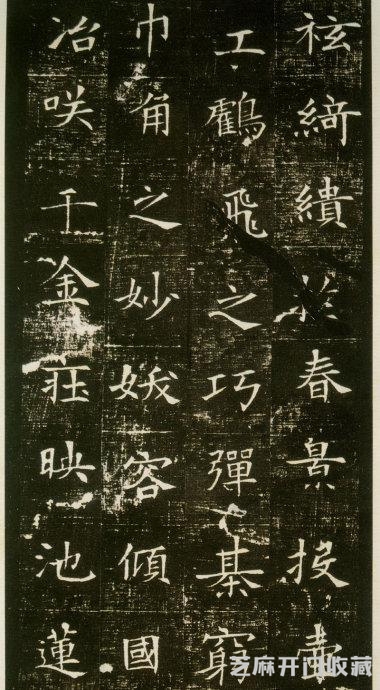 袨綺繢於春景投壺
工鶴飛之巧彈棊窮
巾角之妙妖容傾國
冶咲千金莊映池蓮
芝麻开门收藏